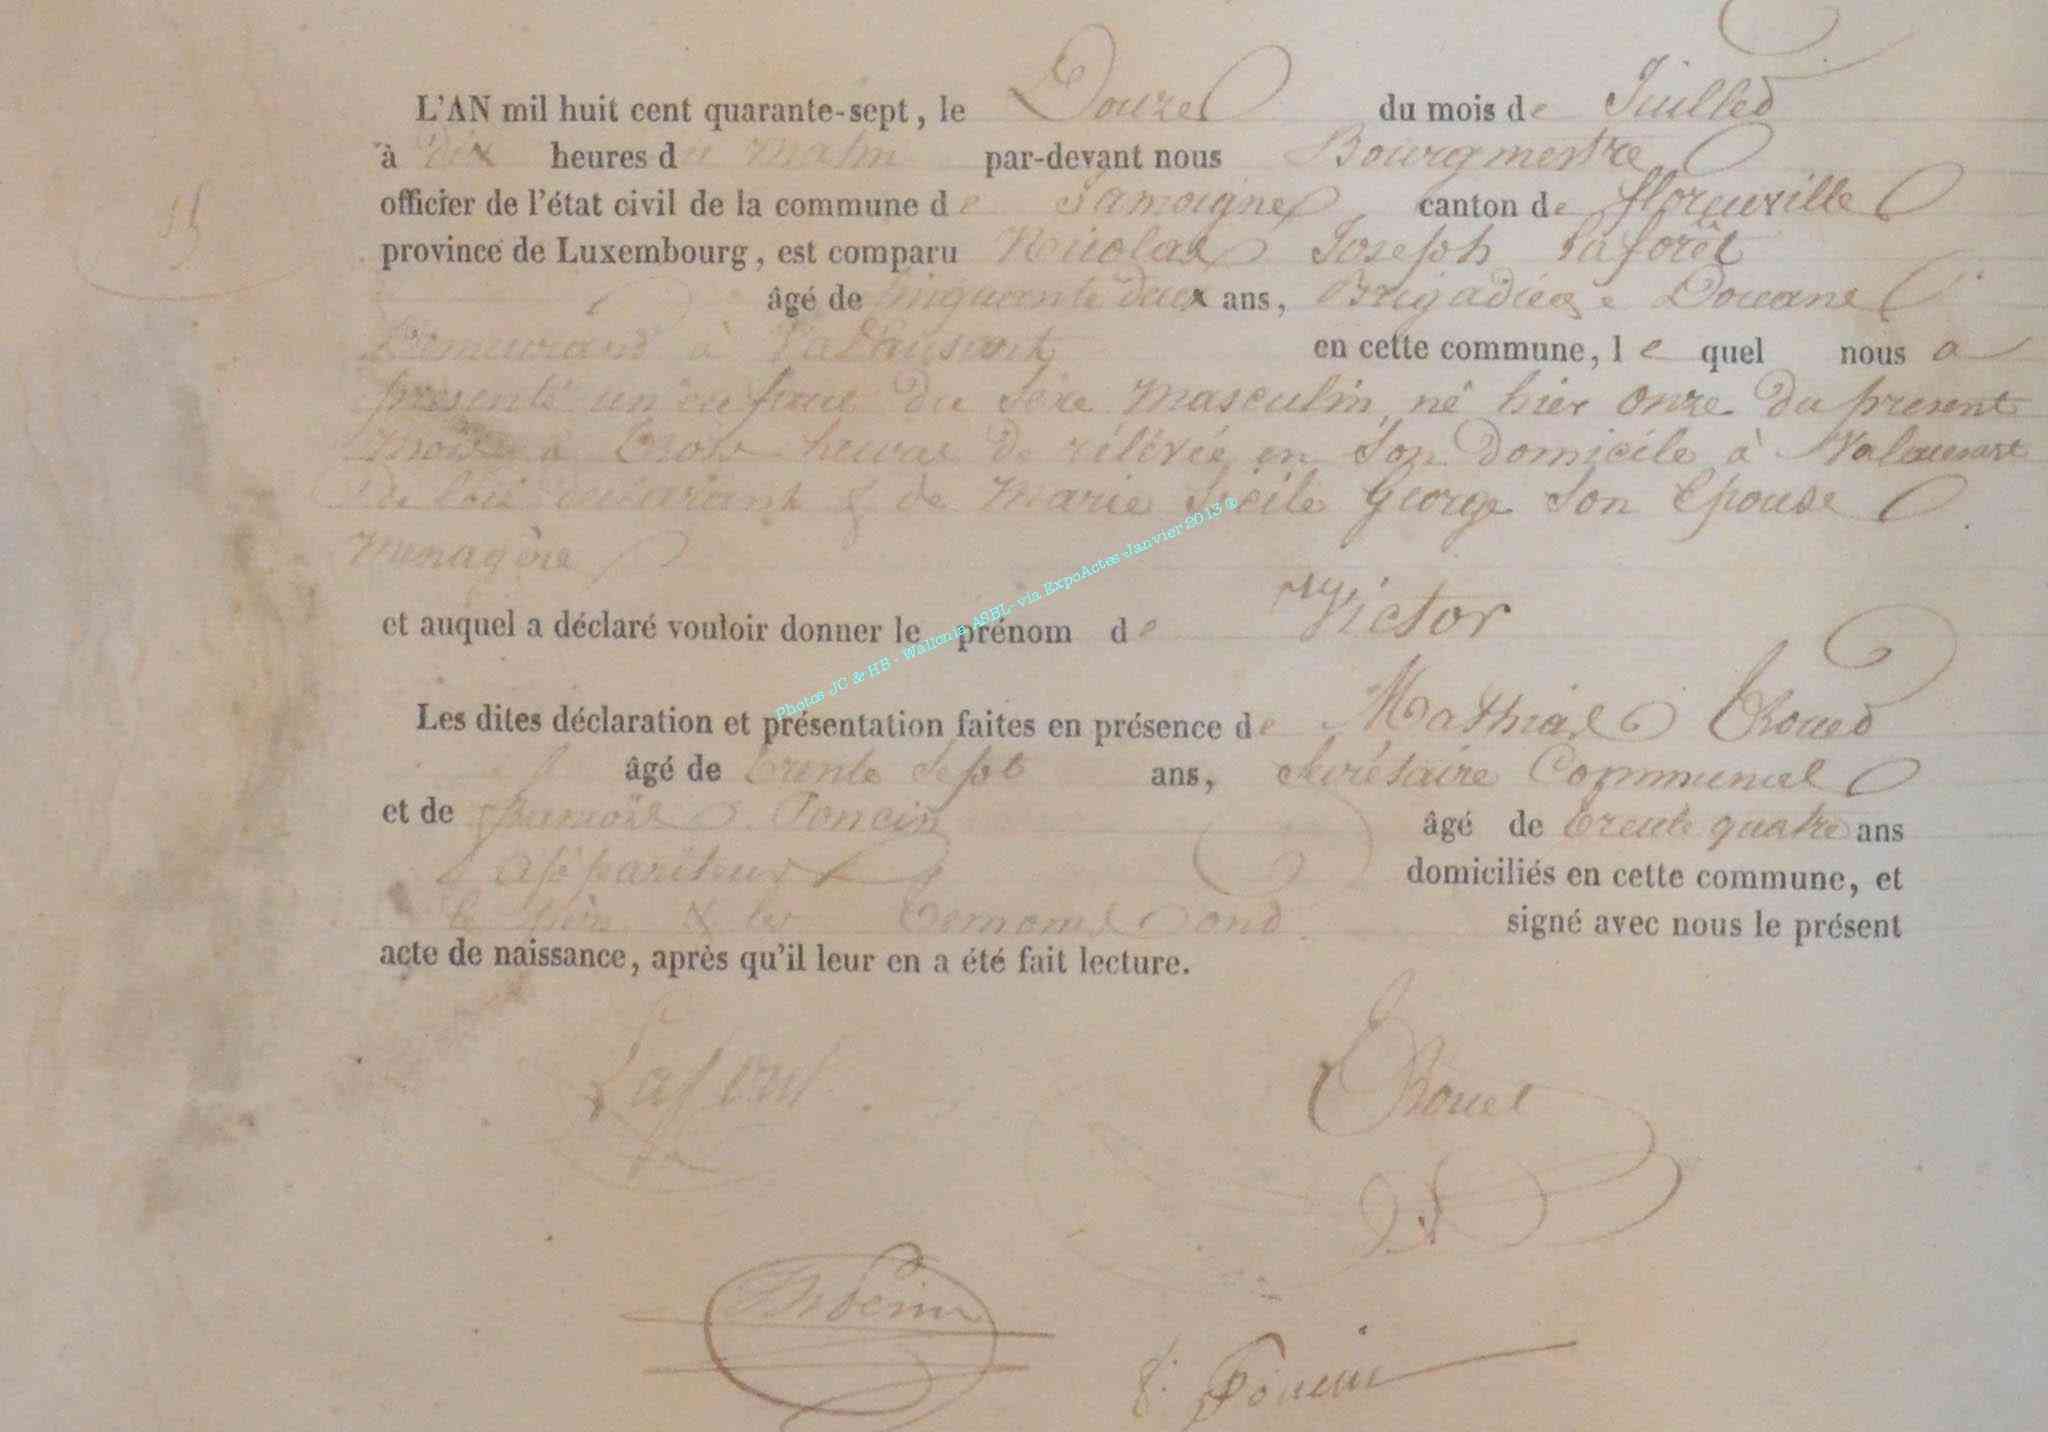 L'AN mil huit cent quarante-sept, le Douze du mois de Juillet
à dix heures du matin par-devant nous Bourgmestre
officier de l'état civil de la commune de Jamoigne canton de florenville
province de Luxembourg, est comparu Nicolas Joseph Laforêt
âgé de cinquante deux ans, Brigadier Douane
Demeurant à en cette commune, le quel nous a
présenté un enfant du sexe masculin, né hier onze du present
mois à trois heures de rélévée en son domicile à Valansart
de lui declarant & de Marie Sicile George son Epouse
menagère
et auquel a déclaré vouloir donner le prénom de Victor
Les dites déclaration et présentation faites en présence de Mathias Thouet
âgé de trente sept ans, Secrétaire Communal
et de Poncin âgé de trente quatre ans
appariteur domiciliés en cette commune, et
le père & les temoins ond signé avec nous le présent
acte de naissance, après qu'il leur en a été fait lecture.
Photos JC & HB - Wallonia ASBL- via ExpoActes-Janvier 2013 ®